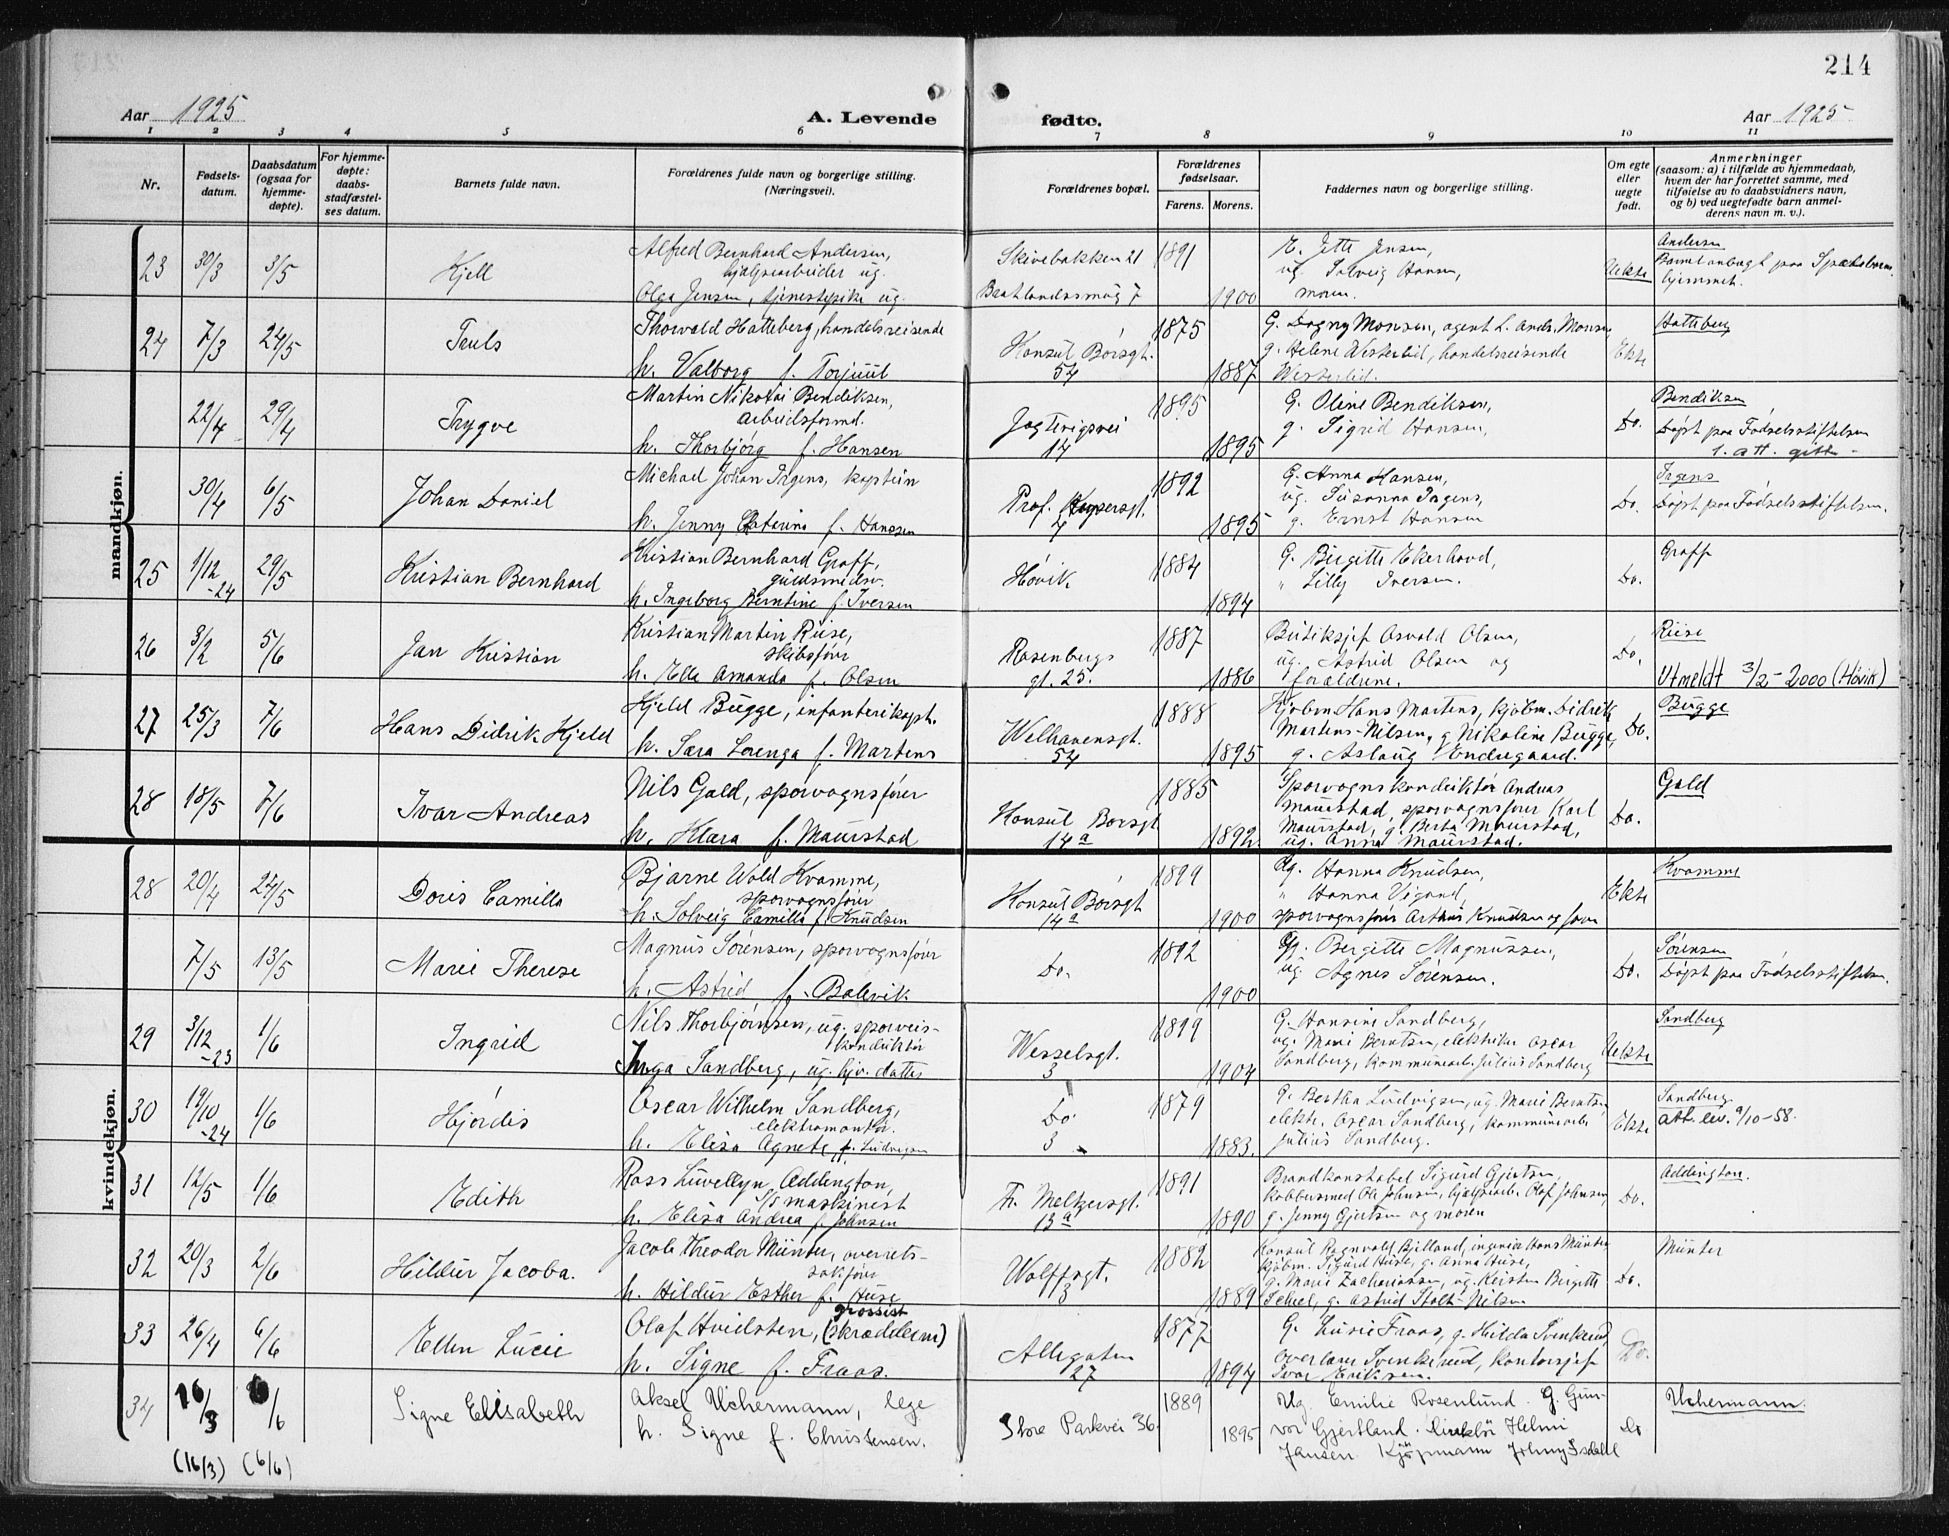 214
Aar 1925
A. Levende
fødte.
Aar 1925
1 2 3 4 5 6 7 8 9 10 11
Nr.
Fødsels-
datum.
Daabsdatum
(ogsaa for
hjemme-
døpte).
For hjemme-
døpte:
daabs-
stadfæstel-
ses datum.
Barnets fulde navn.
Forældrenes fulde navn og borgerlige stilling.
(Næringsvei).
Forældrenes bopæl.
Forældrenes
fødselsaar.
Farens. Morens.
Faddernes navn og borgerlige stilling.
Om egte
eller
uegte
født.
Anmerkninger
(saasom: a) i tilfælde av hjemmedaab,
hvem der har forrettet samme, med
tilføielse av to daabsvidners navn,
og b) ved uegtefødte barn anmel-
derens navn m. v.).
mandkjøn.
23 30/3 3/5 Kjell
Alfred Bernhard Andersen,
hjælpearbeider ug.
Olga Jensen, tjenestepike ug.
Skivebakken 21
Bratlandssmug 7
1891
1900
E. Jette Jensen,
ug. Solveig Hansen,
moren.
Uekte
Andersen
Barnet anbragt paa Spæbarns
hjemmet.
24 7/3 24/5 Truls
Thorvald Hatteberg, handelsreisende
h. Valborg f. Torjuul
Konsul Børsgt.
54
1875
1887
G. Dagny Monsen, agent L. Andr. Monsen
g. Helene Westerlid, handelsreisende
Westerlid.
Ekte
Hatteberg
22/4 29/4 Trygve
Martin Nikolai Bendiksen,
arbeidsformd.
h. Thorbjørg f. Hansen
Jegtevigsvei
14
1895
1895
G. Oline Bendiksen,
g. Sigrid Hansen,
Do.
Bendiksen
Døpt paa Fødselsstiftelsen
1. att. gitt
30/4 6/5 Johan Daniel
Michael Johan Ingens, kaptein
h. Jenny Catarina f. Hanssen
Prof. Keysersgt.
7
1892
1895
G. Anna Hansen,
ug. Susanna Ingens,
g. Ernst Hansen
Do.
Ingens
Døpt paa Fødselsstiftelsen.
25 1/12-24 29/5 Kristian Bernhard
Kristian Bernhard Graff,
guldsmedsv.
h. Ingeborg Berntine f. Iversen
Høvik
1884
1894
G. Birgitte Ekerhovd,
" Lilly Iversen.
Do.
Graff
26 3/2 5/6 Jan Kristian
Kristian Martin Riise,
skibsfører
h. Ella Amanda f. Olsen
Rosenbergs
gt. 25.
1887
1886
Butiksjef Osvald Olsen,
ug. Astrid Olsen og
forældrene.
Do.
Riise
Utmeldt 3/2-2000 (Høvik)
27 25/3 7/6 Hans Didrik Kjeld
Kjeld Bugge, infanterikapt.
h. Sara Lorenga f. Martens
Welhavensgt.
54
1888
1895
Kjøbm Hans Martens, kjøbm. Didrik
Martens-Nilsen, g Nikoline Bugge,
g. Aslaug Endregaard.
Do.
Bugge
28 18/5 7/6 Ivar Andreas
Nils Gald, sporvognsfører
h. Klara f. Maurstad
Konsul Børsgt
14a
1885
1892
Sporvognskonduktør Andreas
Maurstad, sporvognsfører Karl
Maurstad, g. Berta Maurstad,
ug. Anna Maurstad.
Do.
Gald
kvindekjøn.
28 20/4 24/5 Doris Camilla
Bjarne Wold Kvamme,
sporvognsfører
h. Solveig Camilla f. Knudsen
Konsul Børsgt
14a
1899
1900
Ug. Hanna Knudsen,
" Hanna Vigand,
sporvognsfører Arthur Knudsen og faren
Ekte
Kvamme
7/5 13/5 Marie Therese
Magnus Sørensen, sporvognsfører
h. Astrid f. Balevik
Do.
1892
1900
Ug. Bergitte Magnussen,
ug. Agnes Sørensen.
Do.
Sørensen
Døpt paa Fødselsstiftelsen.
29 3/12-23 1/6 Ingrid
Nils Thorbjørnsen, ug. sporveis-
konduktør
Inga Sandberg, ug. hjv. datter
Wesselsgt.
3
1899
1904
G. Hansine Sandberg,
ug. Marie Berntsen, elektriker Oscar
Sandberg, kommunearb. Julius Sandberg
Uekte
Sandberg
30 19/10-24 1/6 Hjørdis
Oscar Wilhelm Sandberg,
elektromontør.
h. Elisa Agnete f. Ludvigsen
Do
3
1879
1883.
G. Bertha Ludvigsen, ug. Marie Berntsen
elektr. Oscar Sandberg, kommunearb.
Julius Sandberg.
Ekte
Sandberg
att. lev. 9/10-58.
31 12/5 1/6 Edith
Ross Luvellyn Addington,
s/s maskinist
h. Elisa Andrea f. Johnsen
Fr. Meltzersgt.
13a
1891
1890
Brandkonstabel Sigurd Gjertsen,
kobbersmed Ole Johnsen, hjælpearb. Olaf Johnsen,
g. Jenny Gjertsen og moren
Do.
Addington.
32 20/3 2/6 Hildur Jacoba.
Jacob Theodor Münter, overrets-
sakfører
h. Hildur Esther f. Huse
Wolffsgt.
3
1882
1889
Konsul Ragnvald Bjelland, ingeniør Hans Münter
kjøbm. Sigurd Huse, g. Anna Huse,
g. Marie Zachariassen, ug. Kirsten Birgitte
Schiel, g. Astrid Stolt-Nilsen
Do.
Münter
33 26/4 6/6 Ellen Lucie
grossist
Olaf Hvidsten, (skræddern)
h. Signe f. Fraas.
Allegaten
27
1877
1894
G. Lucie Fraas, g. Hilda Svenkerud,
overlærer Svenkerud, kontorsjef
Ivar Eriksen.
Do.
34 16/3 6/6 Signe Elisabeth
Aksel Uchermann, lege
h. Signe f. Christensen.
Store Parkvei 36.
1889
1895
Ug. Emilie Rosenlund. G. Gun-
vor Gjertland. Direktør Helmi
Jansen. Kjøpmann Johny Isdahl
Do
Uchermann.
(16/3) (6/6)